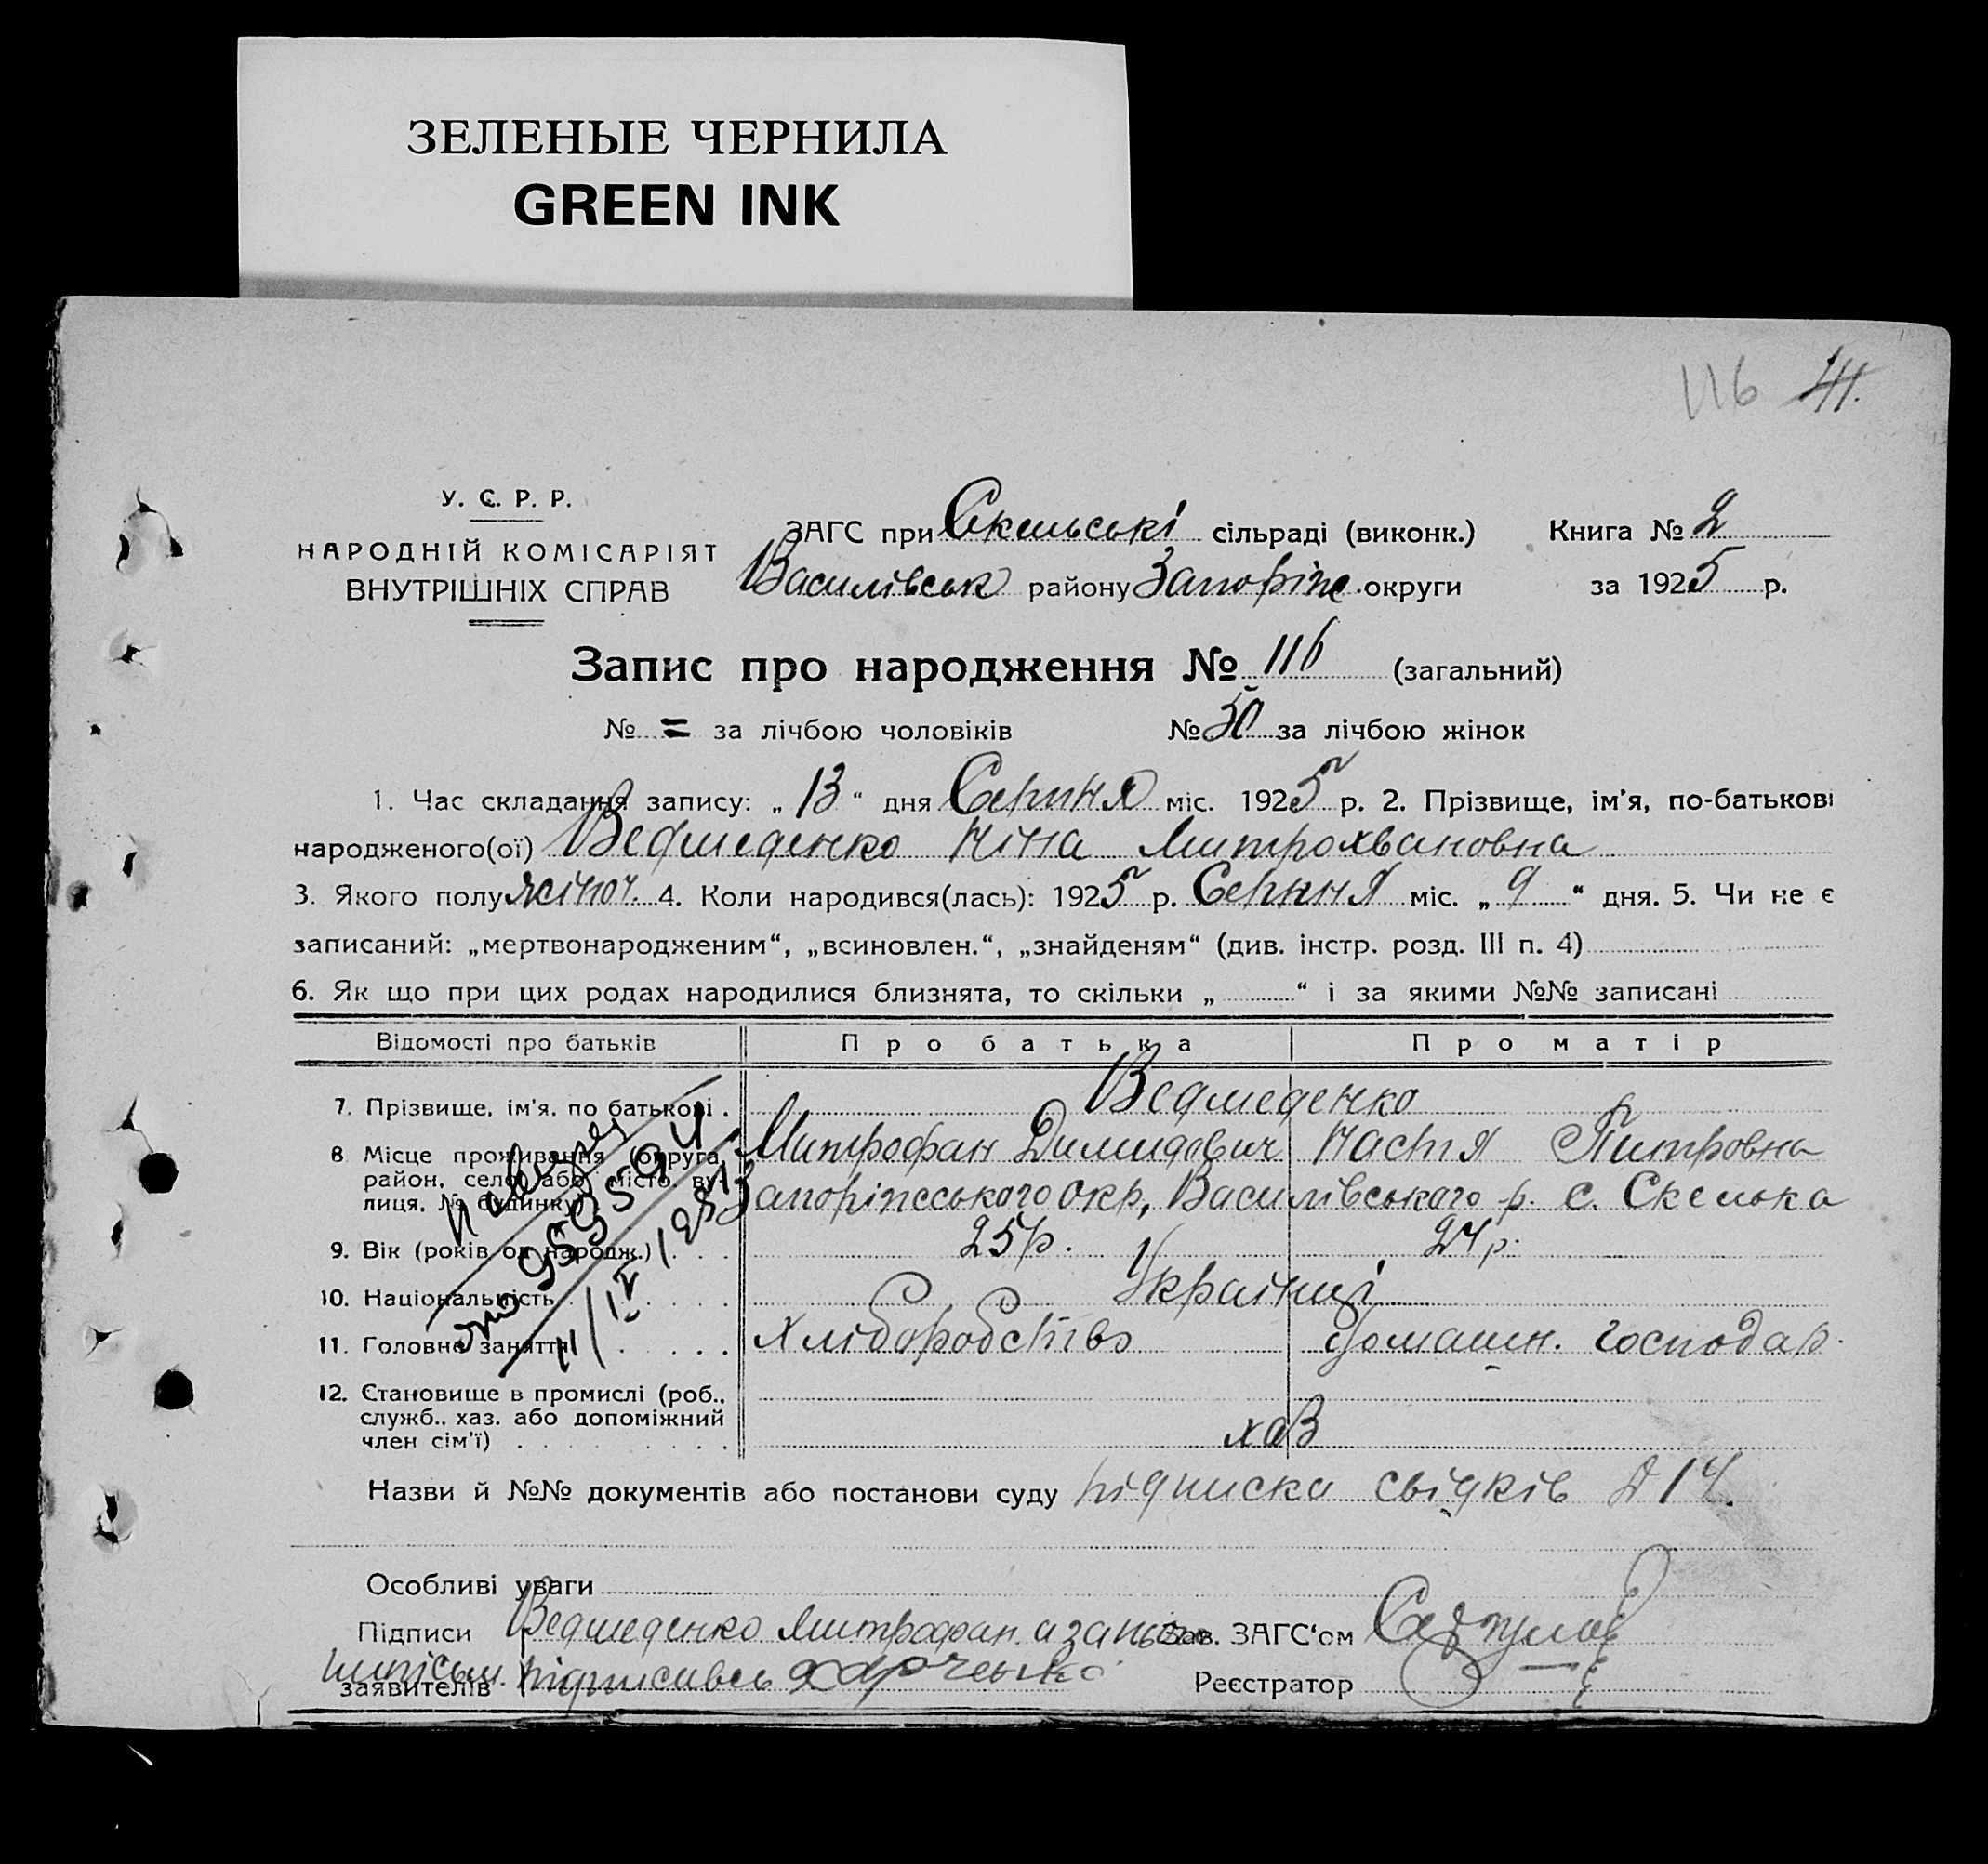 ЗЕЛЕНЫЕ ЧЕРНИЛА
GREEN INK
116 41.
У. С. Р. Р.
НАРОДНІЙ КОМІСАРІЯТ
ВНУТРІШНІХ СПРАВ
ЗАГС при Скельські сільраді (виконк.) Книга № 2
Василівськ району Запоріж. округи за 1925 р.
Запис про народження № 116 (загальний)
№ = за лічбою чоловіків № 50 за лічбою жінок
1. Час складання запису: „ 13 “ дня Серпня міс. 1925 р. 2. Прізвище, ім’я, по-батькові
народженого(ої) Ведмеденко Ніна Митрохвановна
3. Якого полу жіноч. 4. Коли народився(лась): 1925 р. Серпня міс. „ 9 “ дня. 5. Чи не є
записаний: „мертвонародженим“, „всиновлен.“, „знайденям“ (див. інстр. розд. III п. 4)
6. Як що при цих родах народилися близнята, то скільки „ “ і за якими №№ записані
Відомості про батьків Про батька Про матір
7. Прізвище, ім’я, по батькові . Ведмеденко
Митрофан Димидович Настя Питровна
8 Місце проживання (округа,
район, село) або місто, ву-
лиця, № будинку) Запоріжського окр, Василівського р. с. Скелька
9. Вік (років од народж.) 25 р. 24 р.
10. Національність Українці
11. Головне заняття Хліборобство домашн. господар.
12. Становище в промислі (роб.,
служб., хаз. або допоміжний
член сім’ї) хаз
Назви й №№ документів або постанови суду підписка свідків № 14.
Особливі уваги
Підписи Ведмеденко Митрофан. а за него Зав. ЗАГС‘ом
заявителів неписьм. підписавсь Харченко Реєстратор